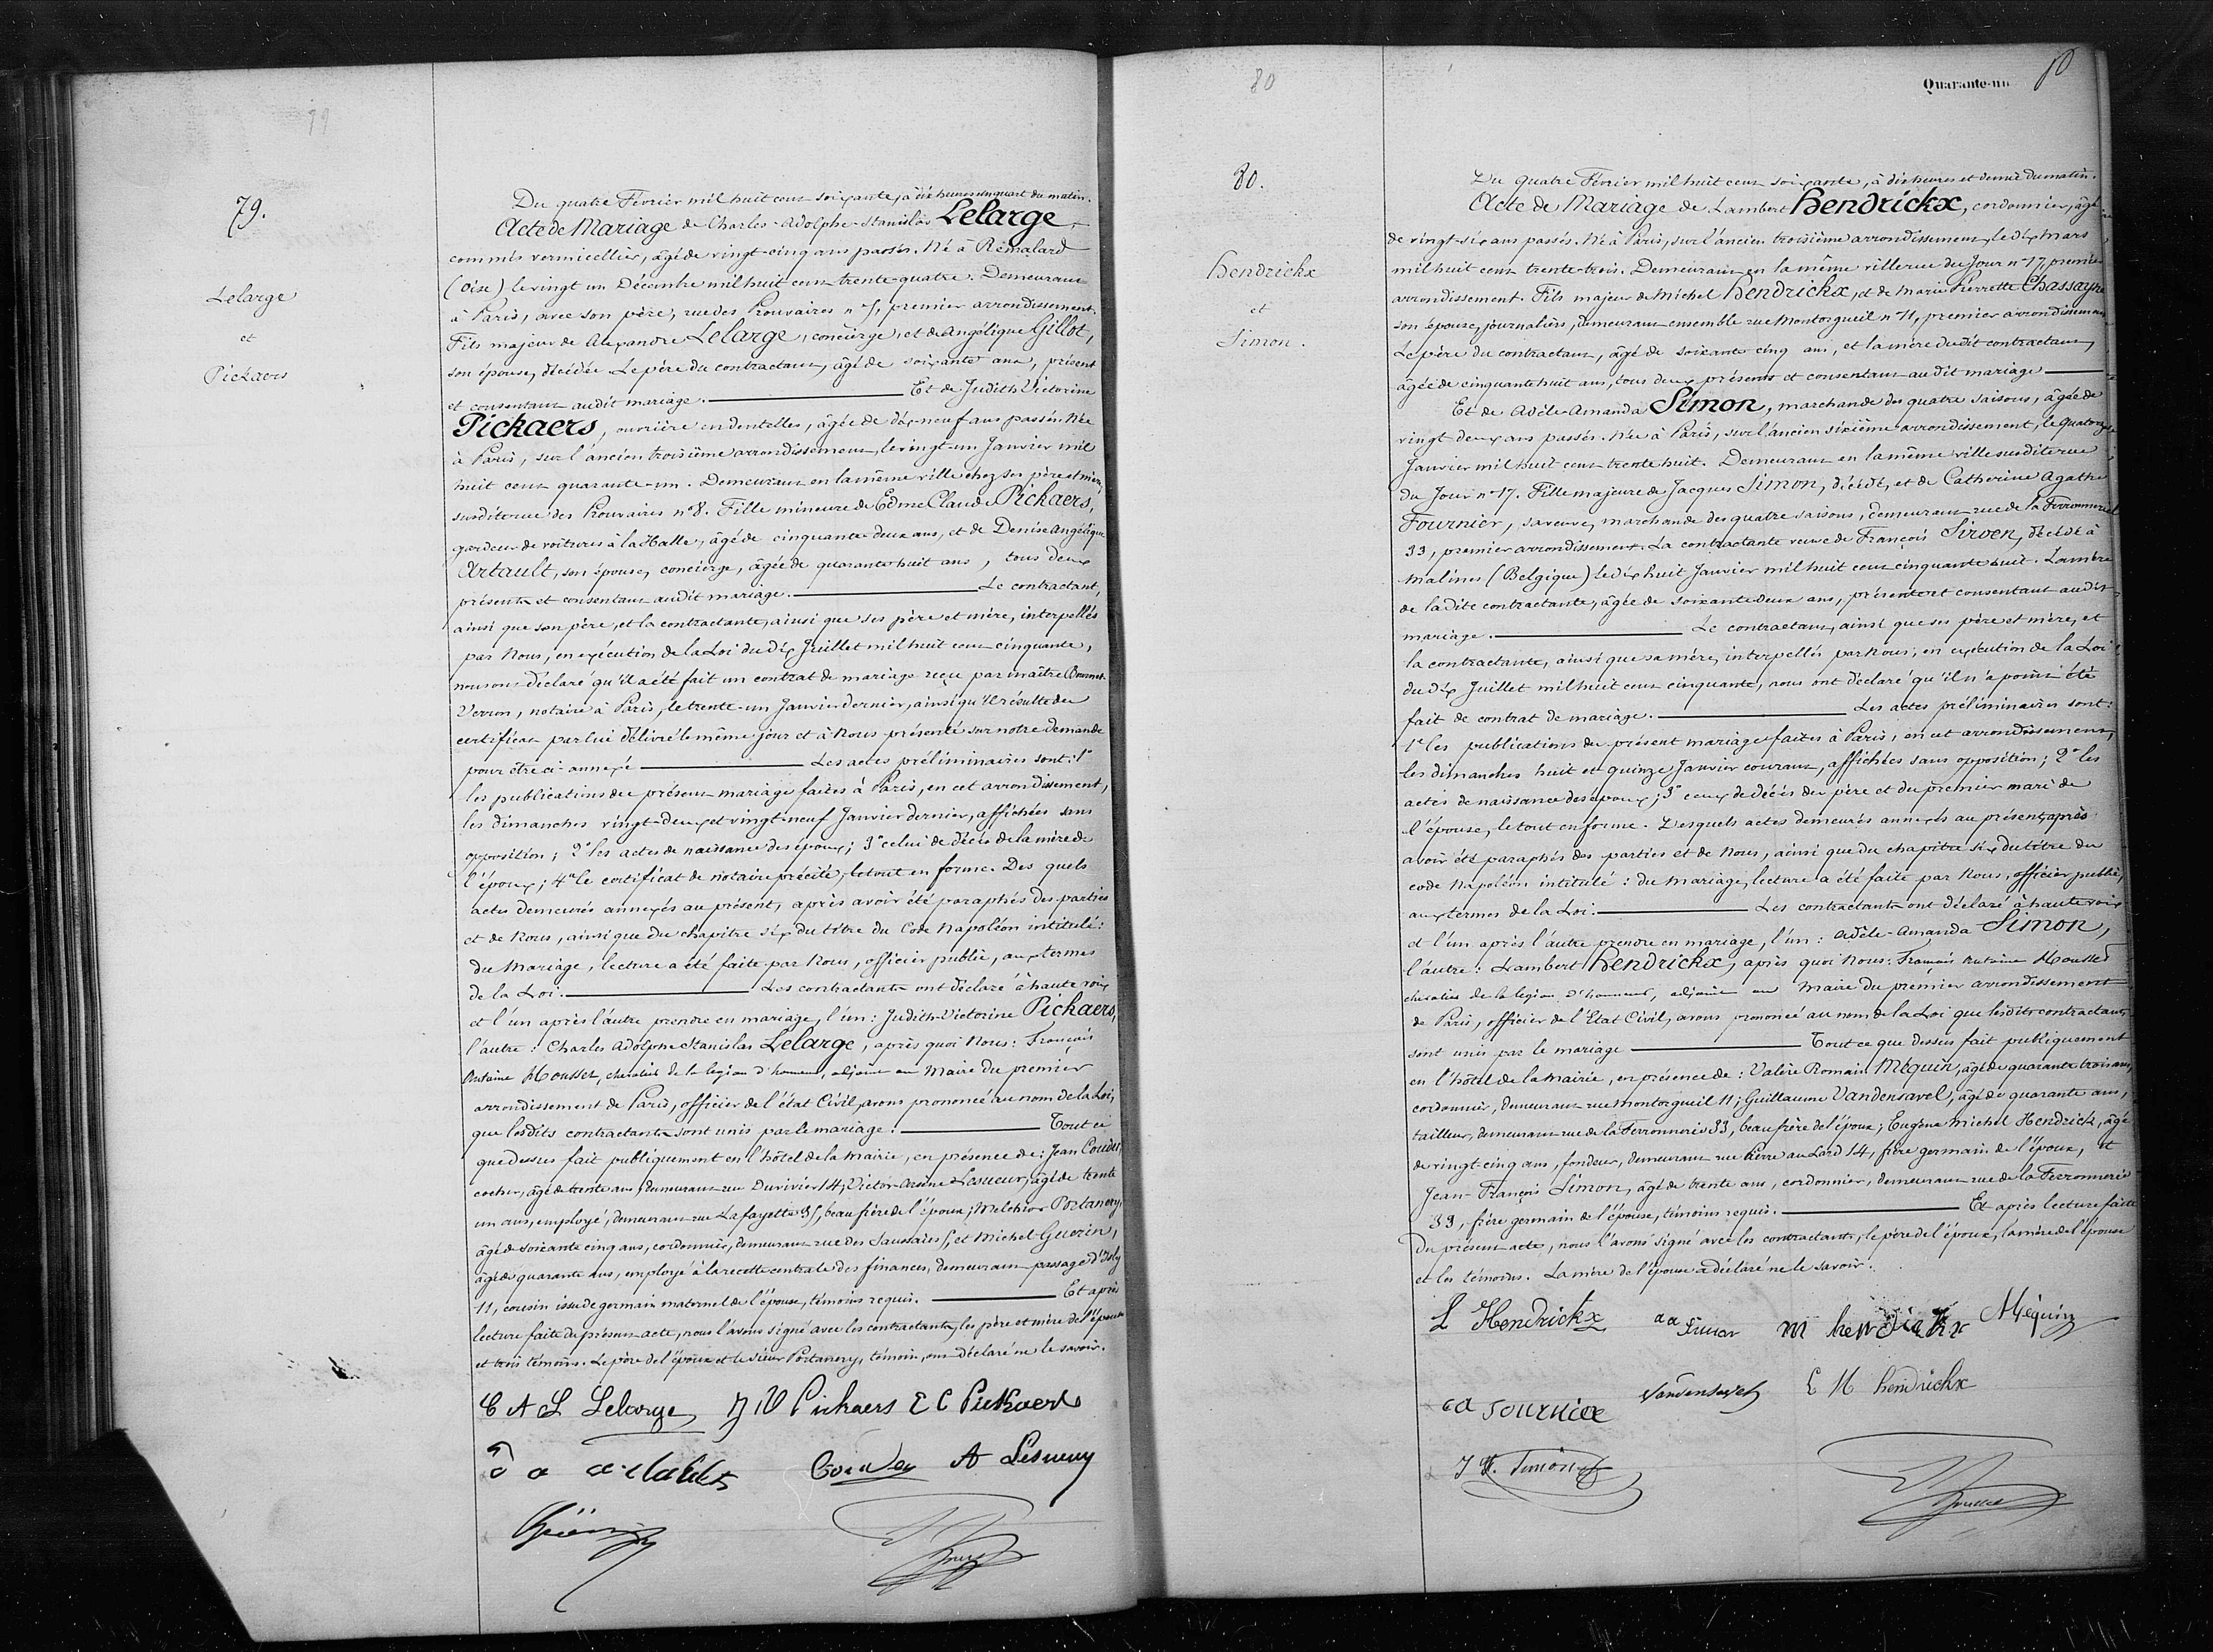 79.
Lelarge
et
Pickaers
Du quatre Février mil huit cent soixante, à dix heures un quart du matin.
Acte de Mariage de Charles-Adolphe-Stanislas Lelarge,
commis vermicellier, âgé de vingt-cinq ans passés. Né à Rémalard
(Oise) le vingt un Décembre mil huit cent trente-quatre. Demeurant
à Paris, avec son père, rue des Prouvaires n° 5, premier arrondissement.
Fils majeur de Alexandre Lelarge, concierge, et de Angélique Gillot,
son épouse, décédée. Le père du contractant, âgé de soixante ans, présent
et consentant audit mariage. Et de Judith Victorine
Pickaers, ouvrière en dentelles, âgée de dix-neuf ans passés. Née
à Paris, sur l'ancien troisième arrondissement, le vingt-un Janvier mil
huit cent quarante-un. Demeurant en la même ville chez ses père et mère,
susdite rue des Prouvaires n° 8. Fille mineure de Edme Claude Pickaers,
gardeur de voitures à la Halle, âgé de cinquante-deux ans, et de Denise Angélique
Artault, son épouse, concierge, âgée de quarante huit ans, tous deux
présents et consentant audit mariage. Le contractant,
ainsi que son père, et la contractante, ainsi que ses père et mère, interpellés
par Nous, en exécution de la Loi du dix Juillet mil huit cent cinquante,
nous ont déclaré qu'il a été fait un contrat de mariage reçu par maître
Verron, notaire à Paris, le trente-un Janvier dernier, ainsi qu'il résulte du
certificat par lui délivré le même jour et à Nous présenté sur notre demande
pour être ci-annexé Les actes préliminaires sont: 1°
les publications du présent mariage faites à Paris, en cet arrondissement,
les dimanches vingt-deux et vingt-neuf Janvier dernier, affichées sans
opposition; 2° les actes de naissance des époux; 3° celui de décès de la mère de
l'époux; 4° le certificat de notaire précité, le tout en forme. Des quels
actes demeurés annexés au présent, après avoir été paraphés des parties
et de Nous, ainsi que du chapitre six du titre du Code Napoléon intitulé:
du Mariage, lecture a été faite par Nous, officier public, aux termes
de la Loi. Les contractants ont déclaré à haute voix
et l'un après l'autre prendre en mariage, l'un: Judith-Victorine Pickaers,
l'autre: Charles Adolphe Stanislas Lelarge, après quoi Nous: François
Antoine Housset, chevalier de la légion d'honneur, adjoint au Maire du premier
arrondissement de Paris, officier de l'état Civil, avons prononcé au nom de la Loi,
que lesdits contractants sont unis par le mariage. Tout ce
que dessus fait publiquement en l'hôtel de la Mairie, en présence de: Jean
cocher, âgé de trente ans, demeurant rue Duvivier 14; Victor Lesueur, âgé de trente
un ans, employé, demeurant rue Lafayette 35, beau frère de l'époux; Melchior Portanery,
âgé de soixante cinq ans, cordonnier, demeurant rue des Saussaies 5, et Michel Guérin,
âgé de quarante ans, employé à la recette centrale des finances, demeurant passage d'Isly
11, cousin issu de germain maternel de l'épouse, témoins requis. Et après
lecture faite du présent acte, nous l'avons signé avec les contractants, les père et mère de l'épouse
et trois témoins. Le père de l'époux et le sieur Portanery, témoin, ont déclaré ne le savoir.
C A S Lelarge J V Pickaers E C Pickaers
A Lesueur
Guérin
80
Quarante-un
80.
Hendrickx
et
Simon.
Du quatre Février mil huit cent soixante, à dix heures et demie du matin.
Acte de Mariage de Lambert Hendrickx, cordonnier, âgé
de vingt-six ans passés. Né à Paris, sur l'ancien troisième arrondissement, le dix Mars
mil huit cent trente-trois. Demeurant en la même ville rue du Jour n° 17, premier
arrondissement. Fils majeur de Michel Hendrickx, et de Marie Pierrette Chassayne
son épouse, journaliers, demeurant ensemble rue Montorgueil n° 11, premier arrondissement
Le père du contractant, âgé de soixante cinq ans, et la mère dudit contractant,
âgée de cinquante huit ans, tous deux présents et consentant audit mariage
Et de Adèle-Amanda Simon, marchande des quatre saisons, âgée de
vingt deux ans passés. Née à Paris, sur l'ancien sixième arrondissement, le quatorze
Janvier mil huit cent trente huit. Demeurant en la même ville susdite rue
du Jour n° 17. Fille majeure de Jacques Simon, décédé, et de Catherine Agathe
Fournier, sa veuve, marchande des quatre saisons, demeurant rue de la Ferronnerie
33, premier arrondissement. La contractante veuve de François Sirven, décédé à
Malines (Belgique) le dix huit Janvier mil huit cent cinquante huit. La mère
de la dite contractante, âgée de soixante deux ans, présente et consentant audit
mariage. Le contractant, ainsi que ses père et mère, et
la contractante, ainsi que sa mère, interpellés par Nous, en exécution de la Loi
du dix Juillet mil huit cent cinquante, nous ont déclaré qu'il n'a point été
fait de contrat de mariage. Les actes préliminaires sont:
1° les publications du présent mariage faites à Paris, en cet arrondissement,
les dimanches huit et quinze Janvier courant, affichées sans opposition; 2° les
actes de naissance des époux; 3° ceux de décès du père et du premier mari de
l'épouse, le tout en forme. Desquels actes demeurés annexés au présent, après
avoir été paraphés des parties et de Nous, ainsi que du chapitre six du titre du
code Napoléon intitulé: du Mariage, lecture a été faite par Nous, officier public,
aux termes de la Loi. Les contractants ont déclaré à haute voix
et l'un après l'autre prendre en mariage, l'un: Adèle-Amanda Simon,
l'autre: Lambert Hendrickx, après quoi Nous: François Antoine Housset
chevalier de la légion d'honneur, adjoint au Maire du premier arrondissement
de Paris, officier de l'Etat Civil, avons prononcé au nom de la Loi que lesdits contractants
sont unis par le mariage Tout ce que dessus fait publiquement
en l'hôtel de la Mairie, en présence de: Valère Romain Méquin, âgé de quarante trois ans,
cordonnier, demeurant rue Montorgueil 11; Guillaume Vandensavel, âgé de quarante ans,
tailleur, demeurant rue de la Ferronnerie 33, beau frère de l'époux; Eugène Michel Hendrick, âgé
de vingt-cinq ans, fondeur, demeurant rue Pierre au Lard 14, frère germain de l'époux, et
Jean-François Simon, âgé de trente ans, cordonnier, demeurant rue de la Ferronnerie
33, frère germain de l'épouse, témoins requis. Et après lecture faite
du présent acte, nous l'avons signé avec les contractants, le père de l'époux, la mère de l'épouse
et les témoins. La mère de l'épouse a déclaré ne le savoir.
L Hendrickx aa Simon M hendickx Méquin
ca fournier Vandensavel E M hendrickx
J F. Simon